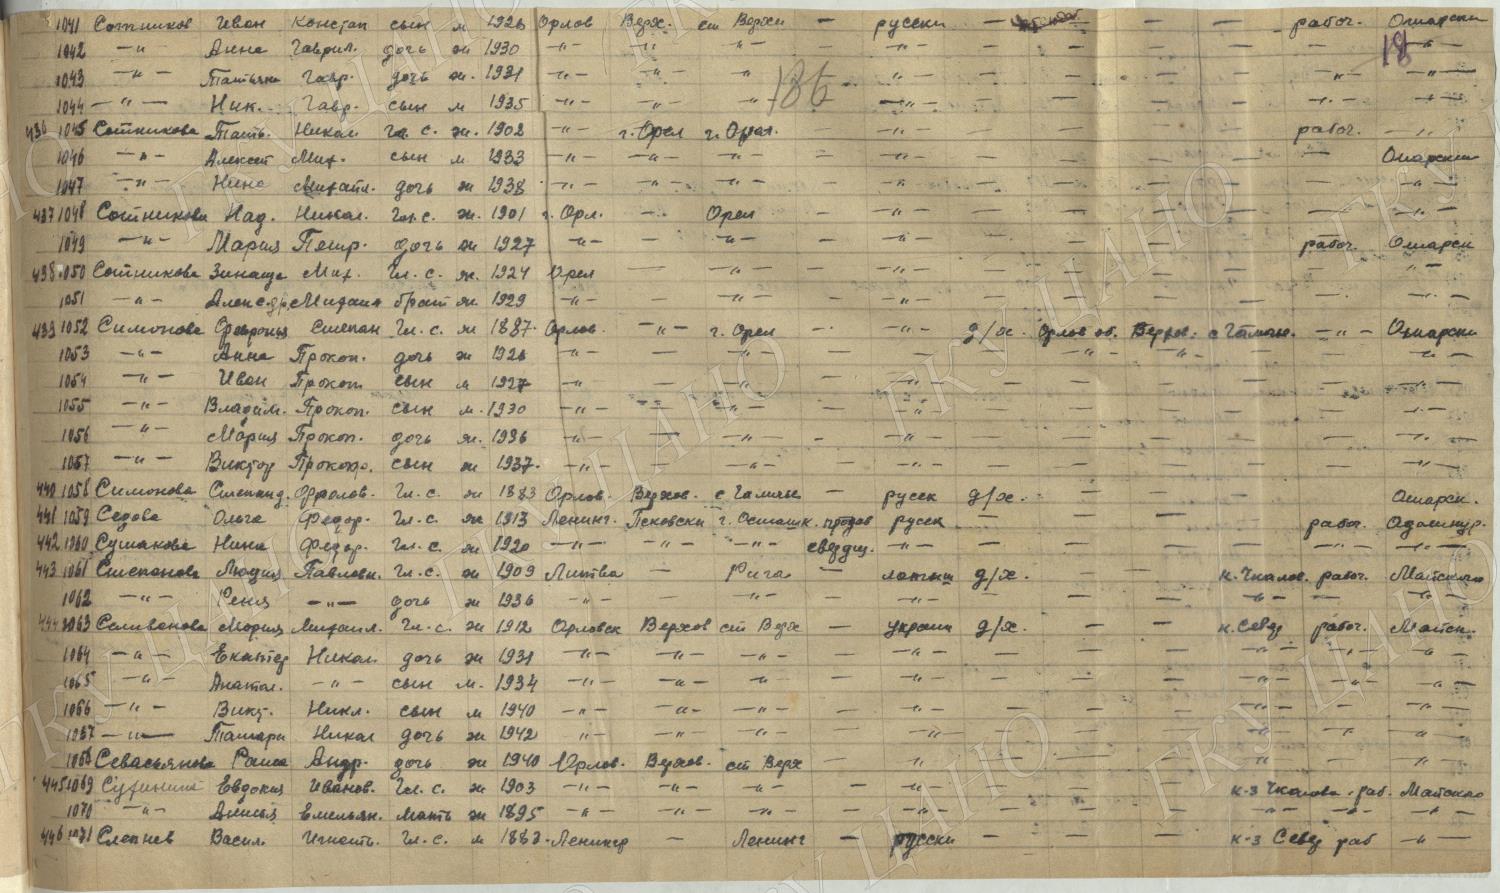 1041 Сотников Иван Констан сын м 1926 Орлов Верх. ст Верхи — русски — — — — рабоч. Ошарски
1042 —"— Анна Гаврил. дочь ж 1930 —"— —"— —"— — —"—
18
1043 —"— Татьяна Гавр. дочь ж. 1931 —"— —"— " —"—
186
1044 —"— Ник. Гавр. сын м 1935 —"— —"— " —"—
436 1045 Сотникова Тать. Никол. Гл. с. ж. 1902 —"— г. Орел г. Орел. —"— рабоч. —"—
1046 —"— Алексей Мих. сын м 1933 —"— —"— —"— — —"— — Ошарски
1047 —"— Нина Михайл. дочь ж 1938 —"— —"— —"— — —"— —"—
437 1048 Сотникова Над. Никол. Гл. с. ж. 1901 г. Орл. — Орел — —"— —"—
1049 —"— Мария Петр. дочь ж 1927 —"— — —"— — —"— рабоч. Ошарск
438 1050 Сотникова Зинаида Мих. Гл. с. ж. 1924 Орел — —"— — —"— —"—
1051 —"— Александр. Михаил брат ж 1929 —"— — —"— — —"— —"—
439 1052 Симонова Февронья Степан Гл. с. ж 1887 Орлов. —"— г. Орел — —"— д/х. Орлов об. Верхов. —"— Ошарски
1053 —"— Анна Прокоп. дочь ж 1926 —"— — —"— — —"— —"—
1054 —"— Иван Прокоп. сын м 1927 —"— — —"— — —"— —"—
1055 —"— Владим. Прокоп. сын м. 1930 —"— — —"— — —"— —"—
1056 —"— Мария Прокоп. дочь ж. 1936 —"— — —"— — —"— —"—
1057 —"— Виктор Прокоф. сын м 1937 —"— — —"— — —"— —"—
440 1058 Симонова Степанид. Фролов. Гл. с. ж 1883 Орлов. Верхов. — русск д/х. — — — Ошарск.
441 1059 Седова Ольга Федор. Гл. с. ж 1913 Ленинг. Псковски русск — — — рабоч.
442 1060 Сушакова Нина Федор. Гл. с. ж 1920 —"— —"— —"— —"— —"— —"—
443 1061 Степанова Людия Павловн. Гл. с. ж 1909 Литва — Рига — латыш д/х. к. Чкалов. рабоч. Майского
1062 —"— Рения —"— дочь ж 1936 —"— — —"— — —"— —"— —"— —"—
444 1063 Селиванова Мария Михаил. Гл. с. ж 1912 Орловск Верхов ст Верх — украин д/х. — — к. Север рабоч. Майск.
1064 —"— Екатер Никол дочь ж 1931 —"— —"— —"— — —"— —"— —"— —"—
1065 —"— Анатол. —"— сын м. 1934 —"— —"— —"— — —"— —"— —"— —"—
1066 —"— Викт. Никл. сын м 1940 —"— —"— —"— — —"— —"— —"— —"—
1067 —"— Тамара Никол дочь ж 1942 —"— —"— —"— — —"— —"— —"— —"—
1068 Севасьянова Раиса Андр. дочь ж 1940 Орлов. Верхов. ст Верх — —"— —"— —"— —"—
445 1069 Евдокия Иванов. Гл. с. ж 1903 —"— —"— —"— — —"— к-з Чкалова раб. Майского
1070 —"— Емельян. мать ж 1895 —"— —"— —"— — —"— —"— —"— —"—
446 1071 Слепнев Васил. Игнать. Гл. с. м 1882 Ленингр — Ленинг — русски — — — к-з Север раб —"—
ГКУ ЦАНО